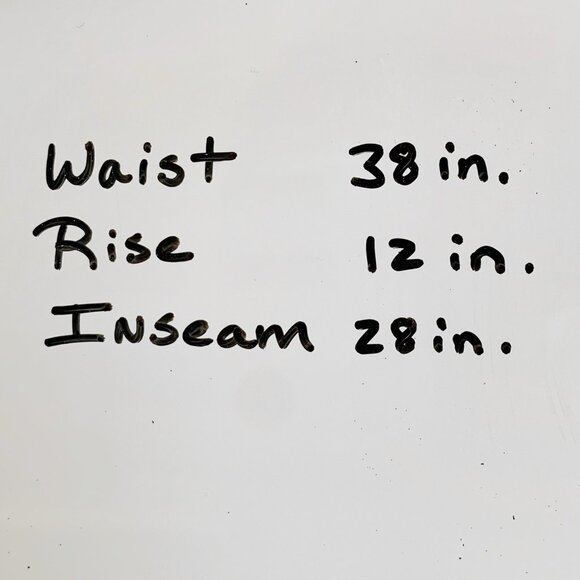 Waist 38 in.
Rise 12 in.
Inseam 28 in.